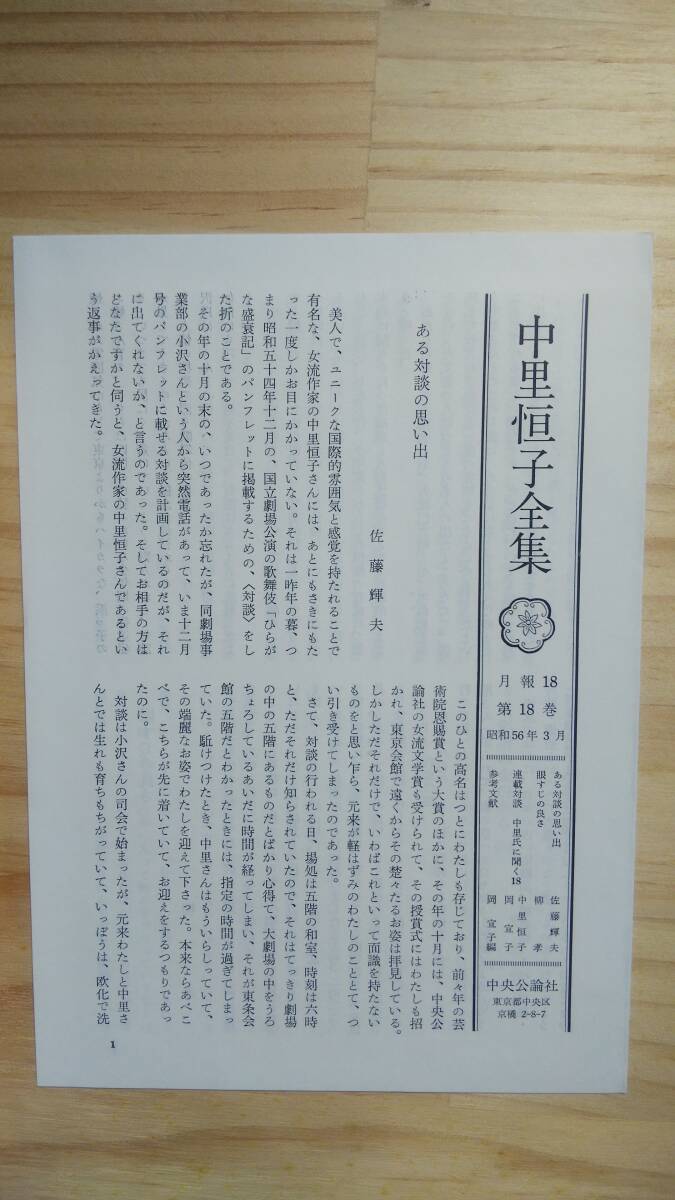 中里恒子全集
月報18
第18巻
昭和56年3月
ある対談の思い出 佐藤輝夫
眼すじの良さ 柳孝
連載対談 中里氏に聞く18 中里恒子
岡宣子
参考文献 岡宣子編
中央公論社
東京都中央区
京橋2-8-7
ある対談の思い出
佐藤輝夫
美人で、ユニークな国際的雰囲気と感覚を持たれることで
有名な、女流作家の中里恒子さんには、あとにもさきにもた
った一度しかお目にかかっていない。それは一昨年の暮、つ
まり昭和五十四年十二月の、国立劇場公演の歌舞伎「ひらが
な盛衰記」のパンフレットに掲載するための、〈対談〉をし
た折のことである。
その年の十月の末の、いつであったか忘れたが、同劇場事
業部の小沢さんという人から突然電話があって、いま十二月
号のパンフレットに載せる対談を計画しているのだが、それ
に出てくれないか、と言うのであった。そしてお相手の方は
どなたですかと伺うと、女流作家の中里恒子さんであるとい
う返事がかえってきた。
このひとの高名はつとにわたしも存じており、前々年の芸
術院恩賜賞という大賞のほかに、その年の十月には、中央公
論社の女流文学賞も受けられて、その授賞式にはわたしも招
かれ、東京会館で遠くからその楚々たるお姿は拝見している。
しかしただそれだけで、いわばこれといって面識を持たない
ものをと思い乍ら、元来が軽はずみのわたしのこととて、つ
い引き受けてしまったのであった。
さて、対談の行われる日、場処は五階の和室、時刻は六時
と、ただそれだけ知らされていたので、それはてっきり劇場
の中の五階にあるものだとばかり心得て、大劇場の中をうろ
ちょろしているあいだに時間が経ってしまい、それが東条会
館の五階だとわかったときには、指定の時間が過ぎてしまっ
ていた。駈けつけたとき、中里さんはもういらしっていて、
その端麗なお姿でわたしを迎えて下さった。本来ならあべこ
べで、こちらが先に着いていて、お迎えをするつもりであっ
たのに。
対談は小沢さんの司会で始まったが、元来わたしと中里さ
んとでは生れも育ちもちがっていて、いっぽうは、欧化で洗
1